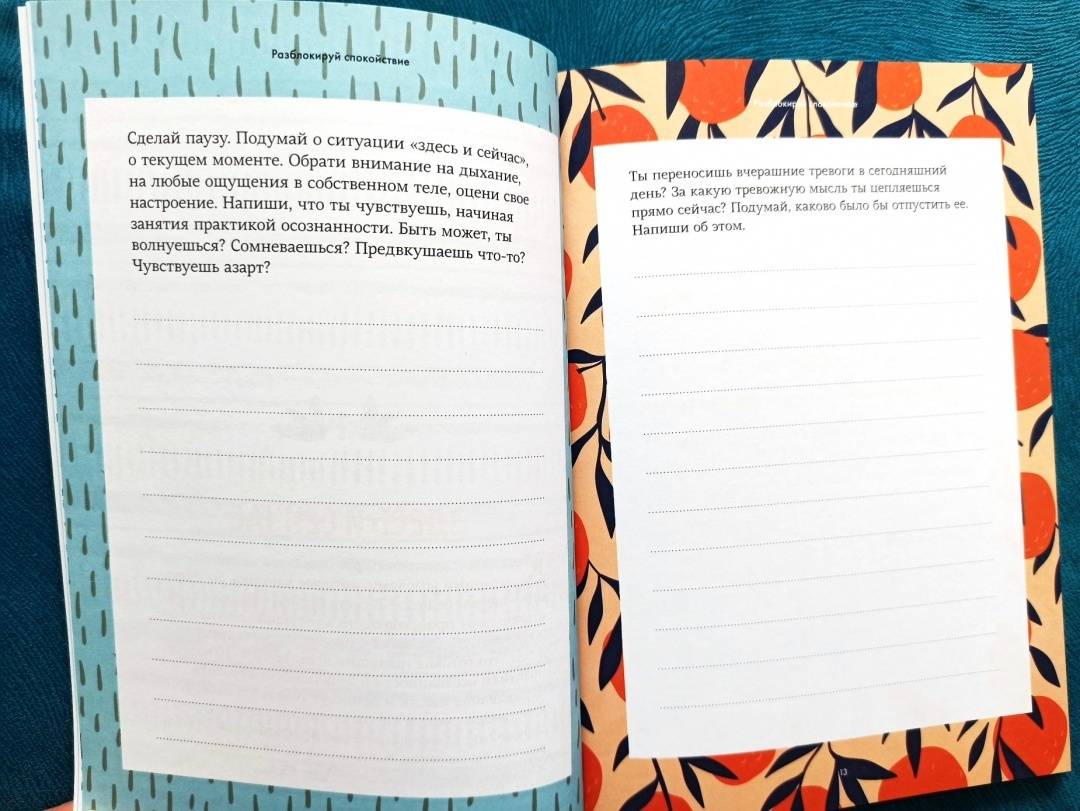 Разблокируй спокойствие
Сделай паузу. Подумай о ситуации «здесь и сейчас»,
о текущем моменте. Обрати внимание на дыхание,
на любые ощущения в собственном теле, оцени свое
настроение. Напиши, что ты чувствуешь, начиная
занятия практикой осознанности. Быть может, ты
волнуешься? Сомневаешься? Предвкушаешь что-то?
Чувствуешь азарт?
Разблокируй спокойствие
Ты переносишь вчерашние тревоги в сегодняшний
день? За какую тревожную мысль ты цепляешься
прямо сейчас? Подумай, каково было бы отпустить ее.
Напиши об этом.
13